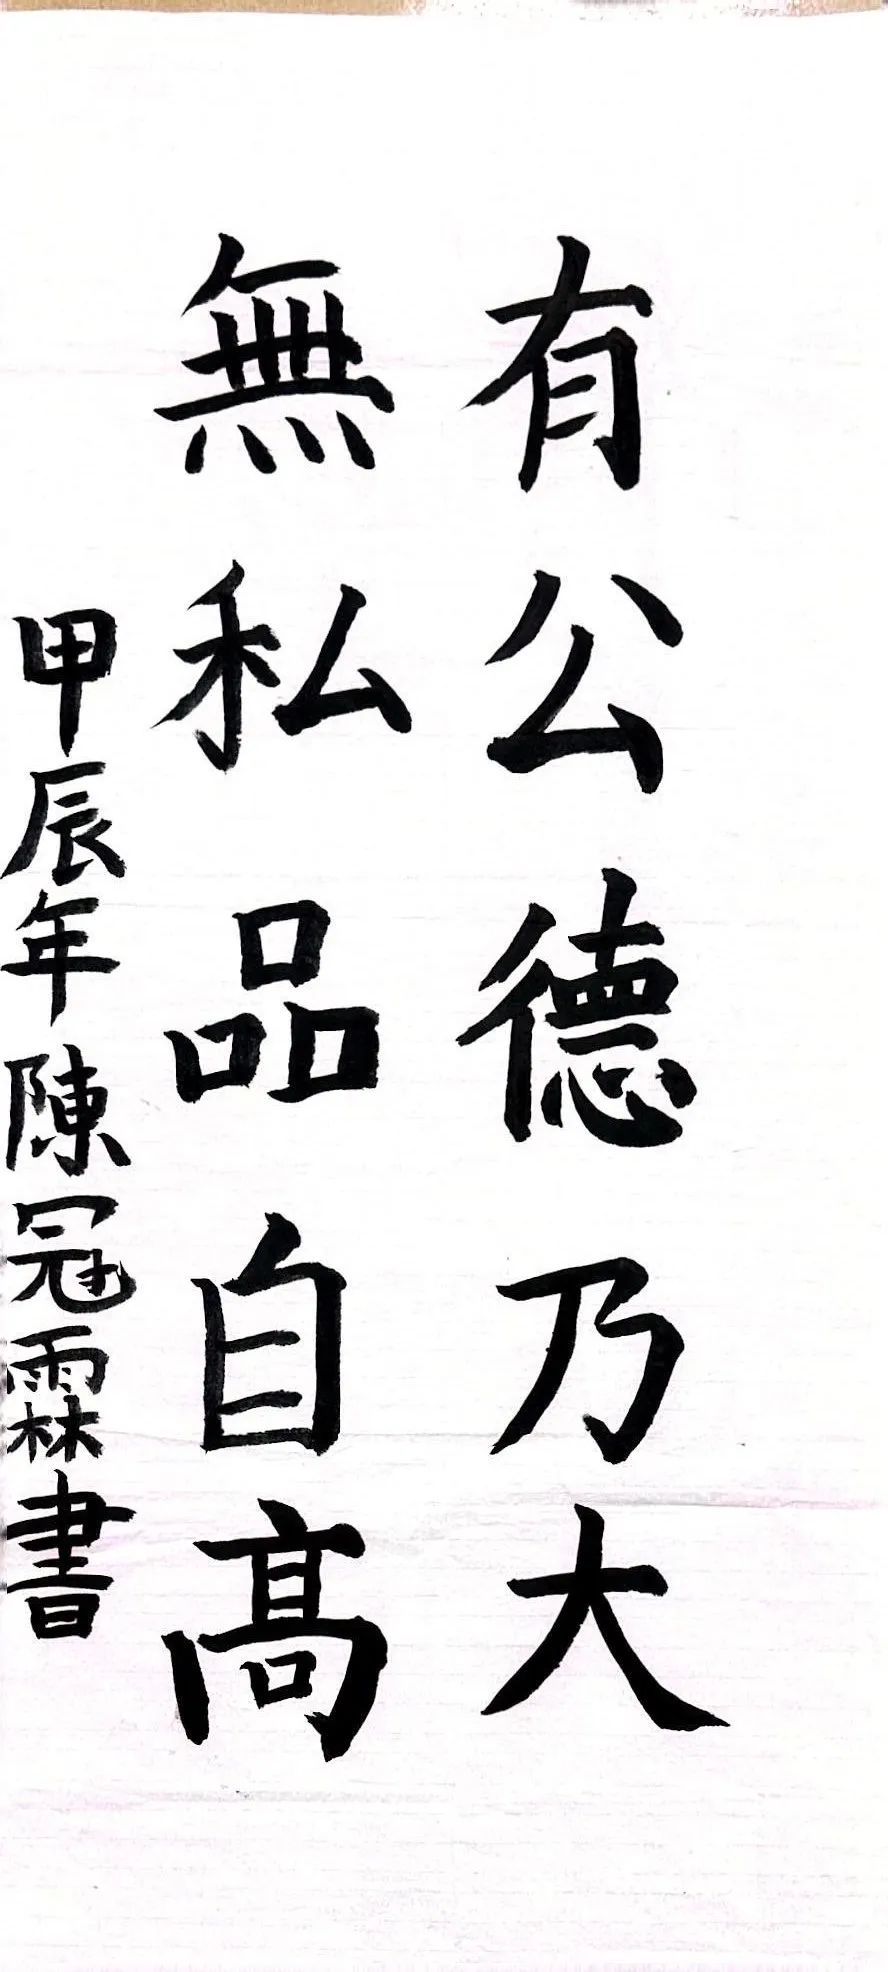 有公德乃大
無私品自髙
甲辰年陳冠霖書